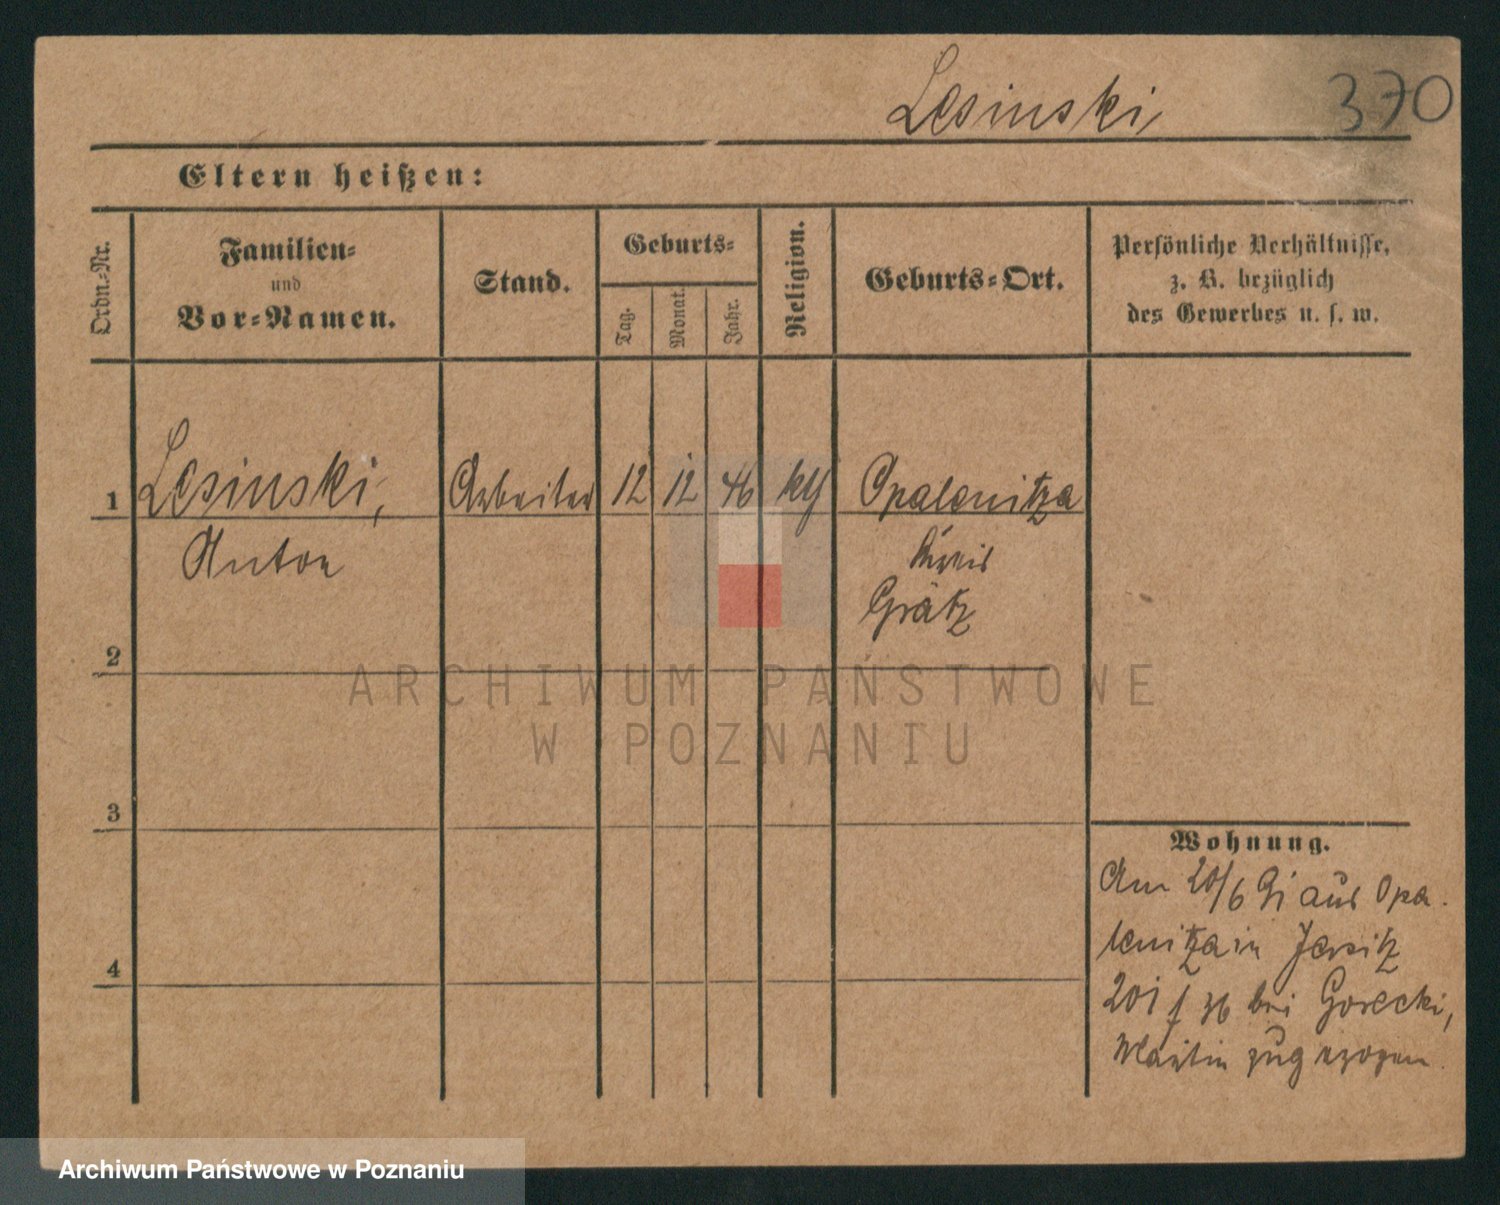 Lesinski, 370
Eltern heißen:
Ordn.-Nr.
Familien-
und
Vor-Namen.
Stand.
Geburts-
Tag.
Monat.
Jahr.
Religion.
Geburts-Ort.
Persönliche Verhältnisse,
z. B. bezüglich
des Gewerbes u. s. w.
1 Lesinski, Arbeiter 12 12 46 Opalenitza
Anton
Kreis
Grätz
2
3
4
Wohnung.
Am 20/6 91 aus Opa-
lenitza in Jersitz
201 bei Gorecki,
Martin zugezogen
ARCHIWUM PAŃSTWOWE
W POZNANIU
Archiwum Państwowe w Poznaniu